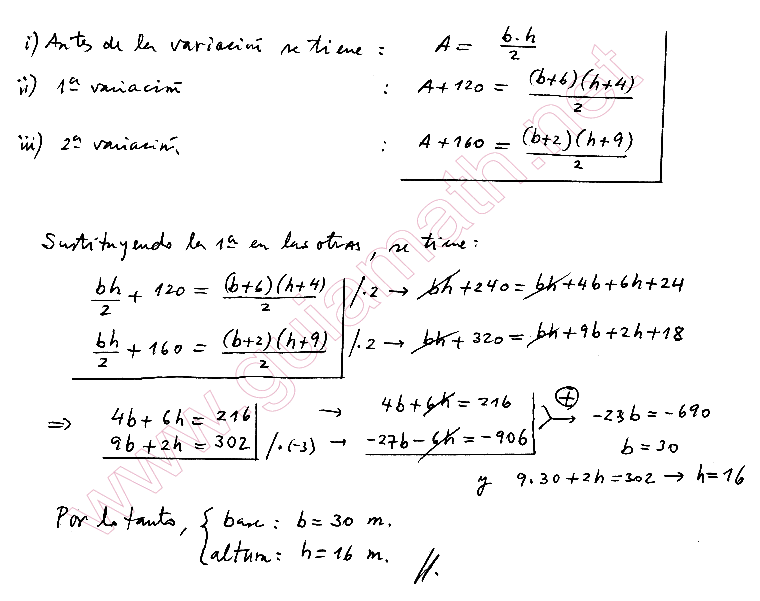 i) Antes de la variación se tiene : A = b·h/2
ii) 1ª variación : A + 120 = (b+6)(h+4)/2
iii) 2ª variación : A + 160 = (b+2)(h+9)/2
Sustituyendo la 1ª en las otras, se tiene:
bh/2 + 120 = (b+6)(h+4)/2 /·2 → bh + 240 = bh + 4b + 6h + 24
bh/2 + 160 = (b+2)(h+9)/2 /·2 → bh + 320 = bh + 9b + 2h + 18
⇒ 4b + 6h = 216 → 4b + 6h = 216 (+) → -23b = -690
9b + 2h = 302 /·(-3) → -27b - 6h = -906 b = 30
y 9·30 + 2h = 302 → h = 16
Por lo tanto, { base : b = 30 m.
altura : h = 16 m. //.
www.guiamath.net